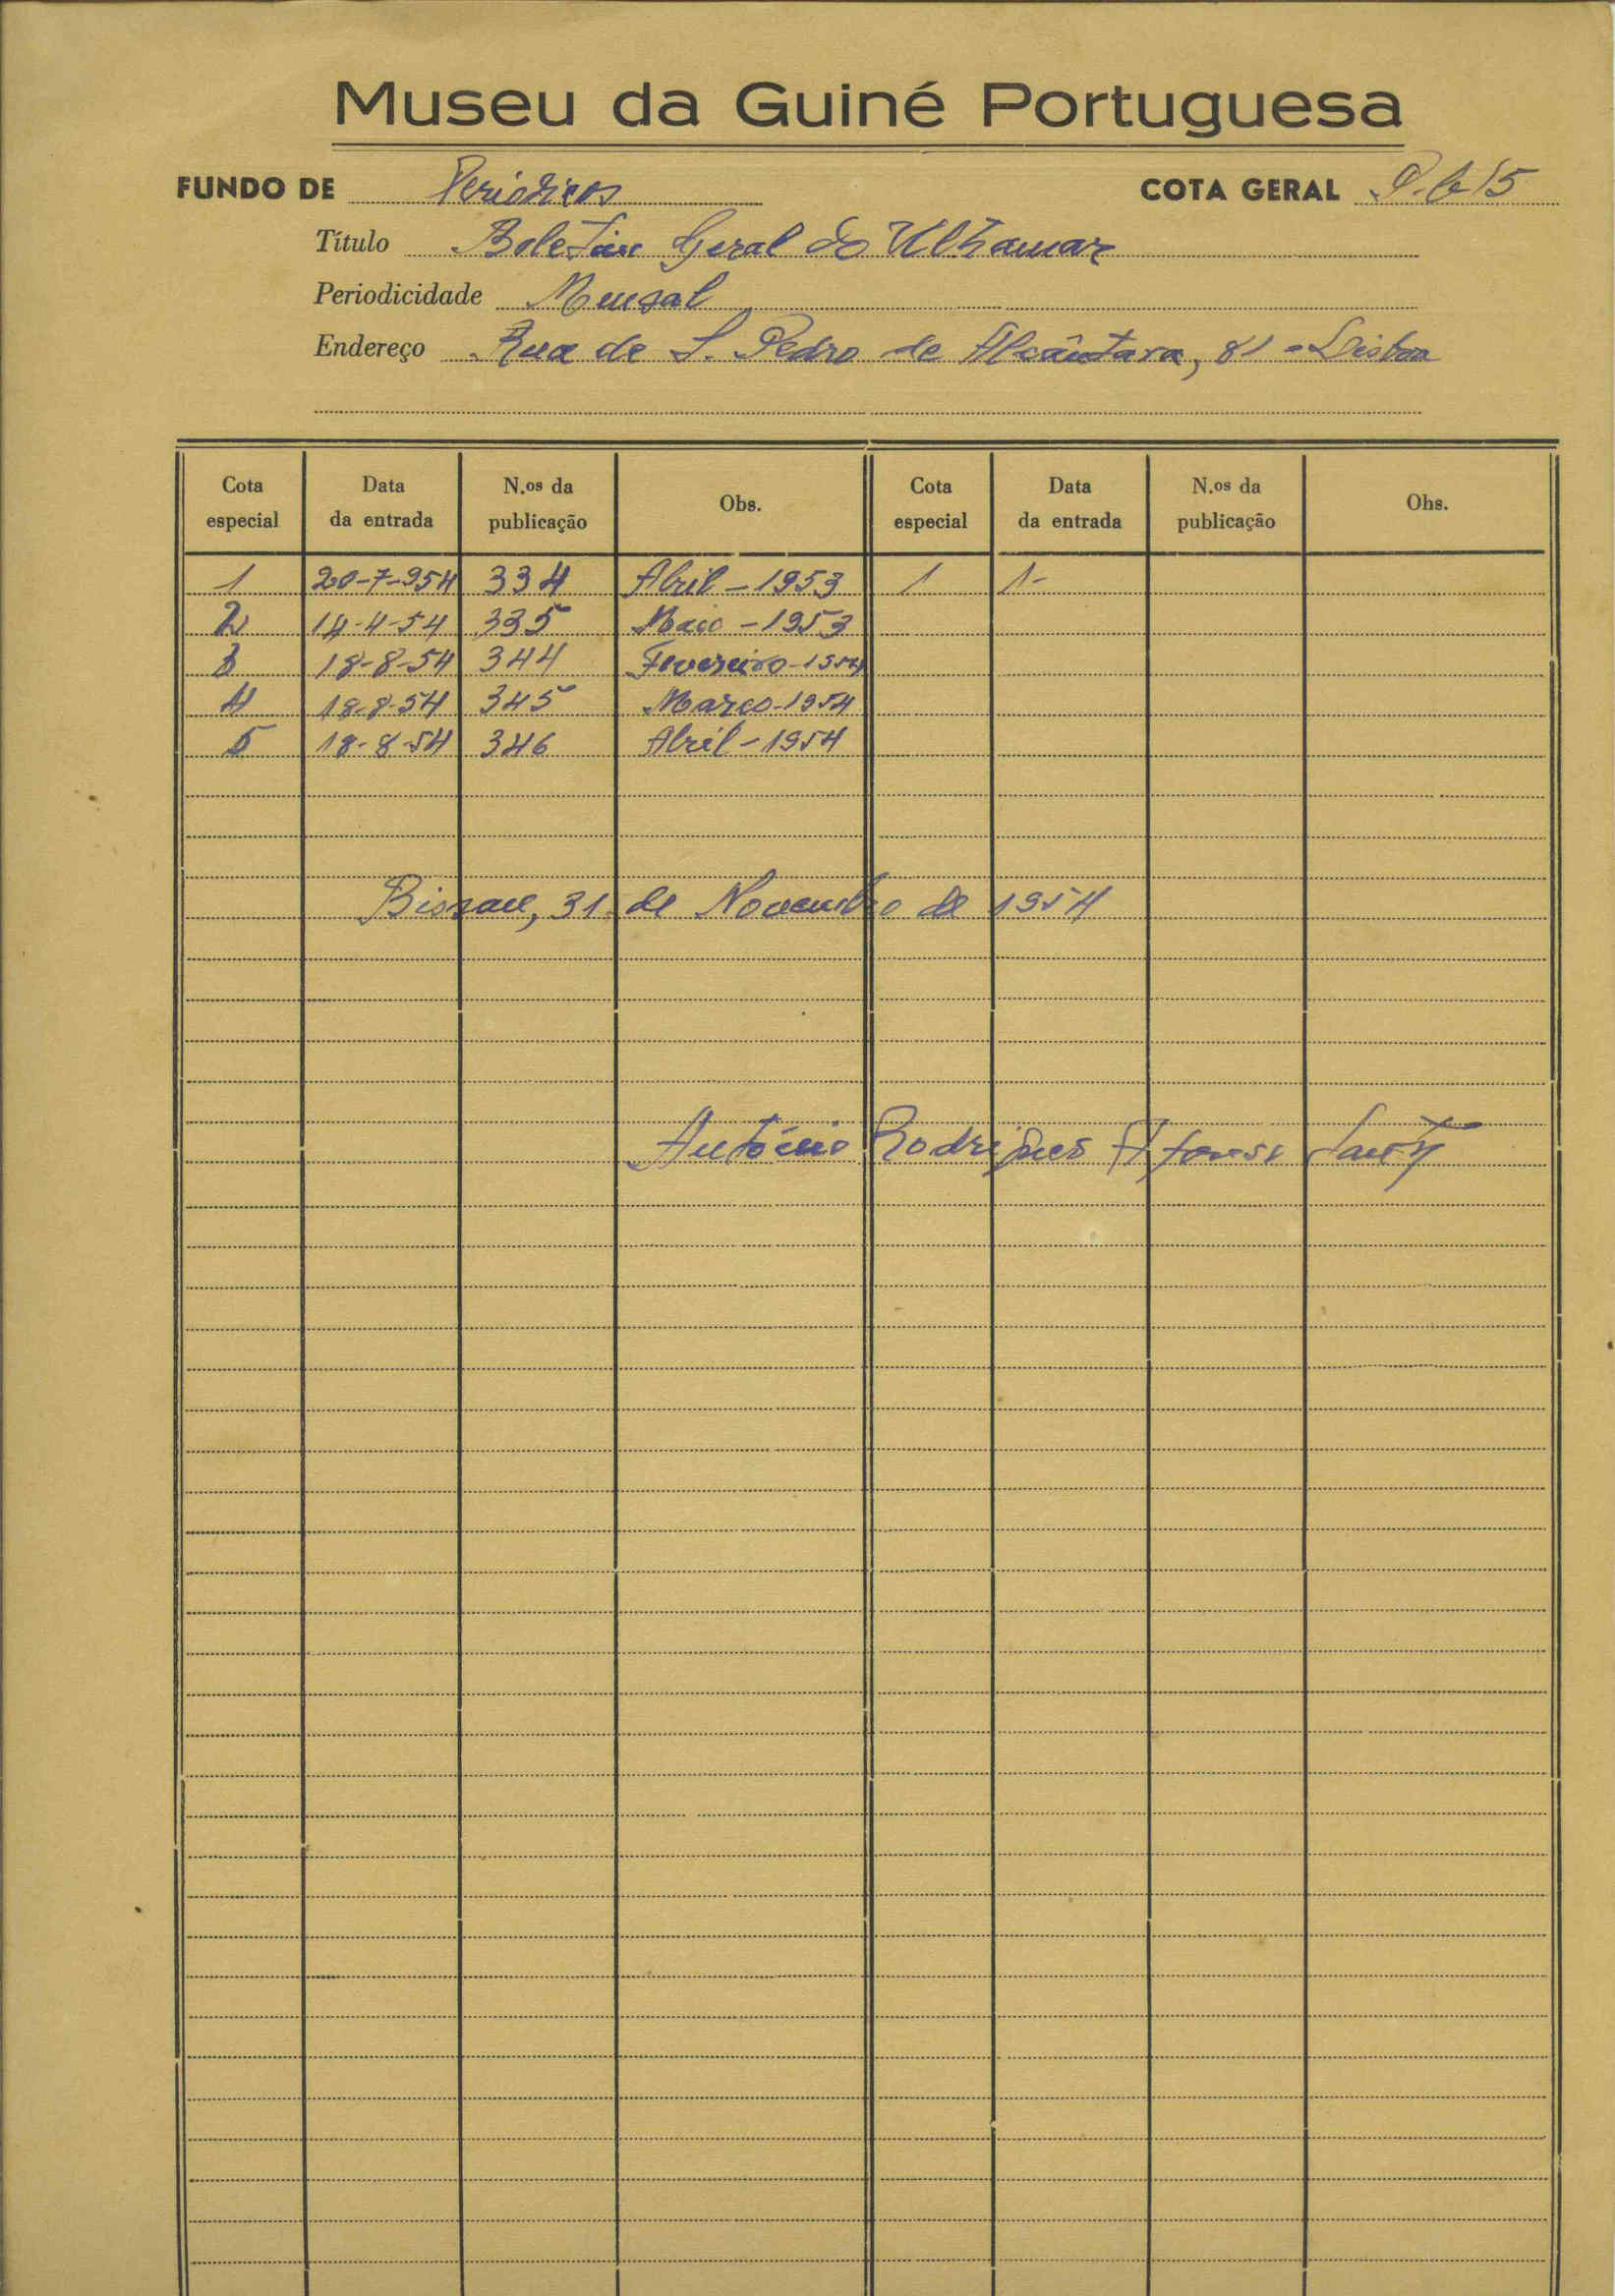 Museu da Guiné Portuguesa
FUNDO DE Periódicos COTA GERAL
Título Boletim Geral do Ultramar
Periodicidade Mensal
Endereço Rua de S. Pedro de Alcântara, 81 - Lisboa
Cota especial Data da entrada N.os da publicação Obs. Cota especial Data da entrada N.os da publicação Obs.
1 20-7-954 334 Abril - 1953 1 1-
2 14-4-54 335 Maio - 1953
3 18-8-54 344 Fevereiro - 1954
4 18-8-54 345 Março - 1954
5 18-8-54 346 Abril - 1954
Bissau, 31 de Novembro de 1954
António Rodrigues Afonso